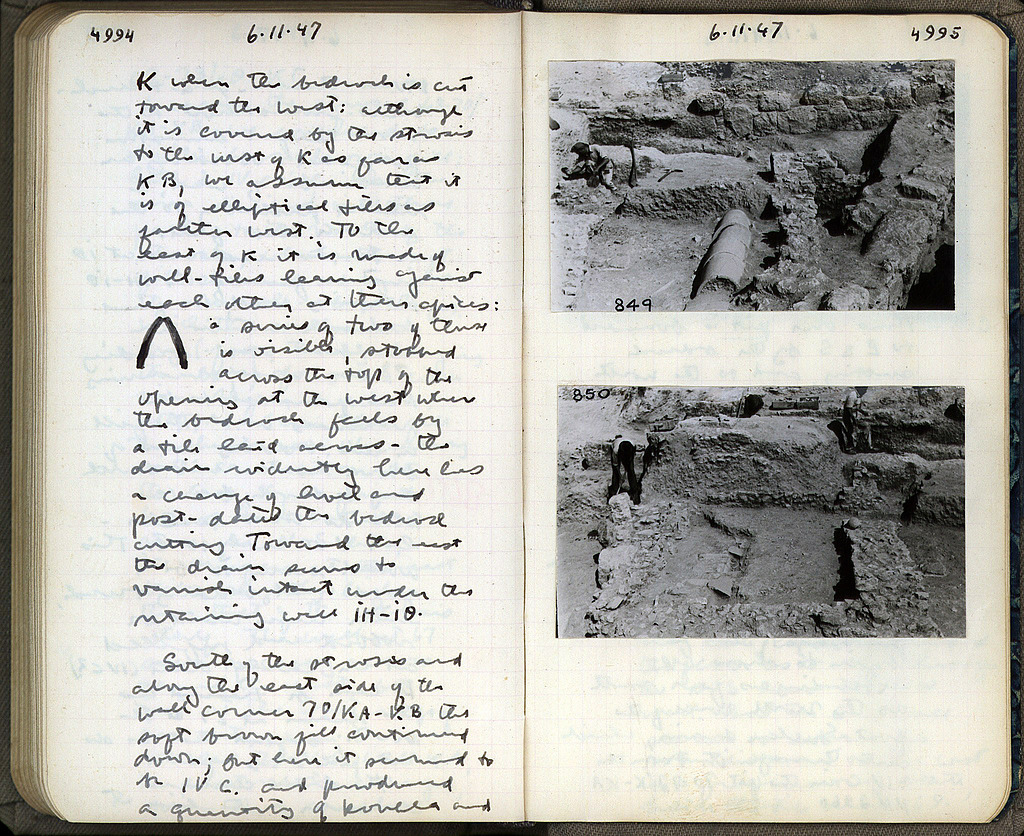 4994
6·11·47
K when the bedrock is cut
toward the west: although
it is covered by the strosis
to the west of K as far as
KB, we assume that it
is of elliptical tiles as
further west. To the
east of K it is made of
well-tiles leaning against
each other at their apices:
a series of two of these
is visible, stopped
across the top of the
opening at the west where
the bedrock fails by
a tile laid across - the
drain evidently here has
a change of level and
post-dates the bedrock
cutting. Toward the east
the drain seems to
vanish intact under the
retaining wall IH-IΘ.
South of the strosis and
along the east side of the
wall corner 70/KA-KB the
soft brown fill continued
down; but here it seemed to
be IV c. and produced
a quantity of and
6·11·47
4995
849
850